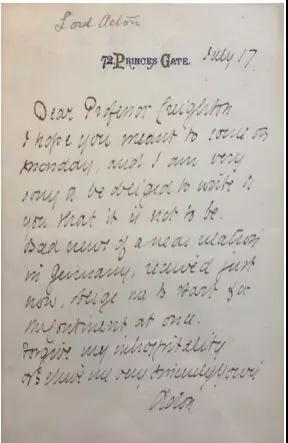 Lord Acton
72, PRINCES GATE.
July 17
Dear Professor Creighton
I hope you meant to come on
Monday, and I am very
sorry to be obliged to write to
you that it is not to be.
Bad news of a near relation
in Germany, received just
now, oblige me to start for
the continent at once.
Forgive my inhospitality
and believe me very sincerely yours
Acton